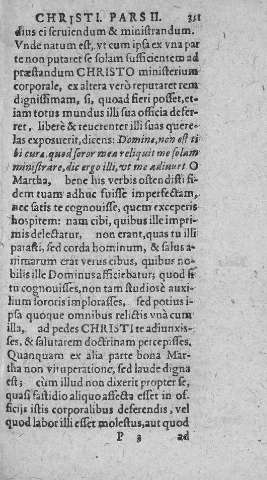 CHRISTI. PARS II. 351
dius ei seruiendum & ministrandum.
Vnde natum est, vt cum ipsa ex vna par
te non putaret se solam sufficientem ad
præstandum CHRISTO ministerium
corporale, ex altera verò reputaret rem
dignissimam, si, quoad fieri posset, et-
iam totus mundus illi sua officia defer-
ret, liberè & reuerenter illi suas quere-
las exposuerit, dicens: Domine, non est ti
bi curæ, quod soror mea reliquit me solam
ministrare, dic ergo illi, vt me adiuuet. O
Martha, bene his verbis ostendisti fi-
dem tuam adhuc fuisse imperfectam,
nec satis te cognouisse, quem exceperis
hospitem: nam cibi, quibus ille impri-
mis delectatur, non erant, quas tu illi
parasti, sed corda hominum, & salus a-
nimarum erat verus cibus, quibus no-
bilis ille Dominus afficiebatur; quod si
tu cognouisses, non tam studiosè auxi-
lium sororis implorasses, sed potius i-
psa quoque omnibus relictis vnà cum
illa, ad pedes CHRISTI te adiunxis-
ses, & salutarem doctrinam percepisses.
Quanquam ex alia parte bona Mar-
tha non vituperatione, sed laude digna
est; cùm illud non dixerit propter se,
quasi fastidio aliquo affecta esset in of-
ficijs istis corporalibus deferendis, vel
quod labor illi esset molestus, aut quod
P 3 ad